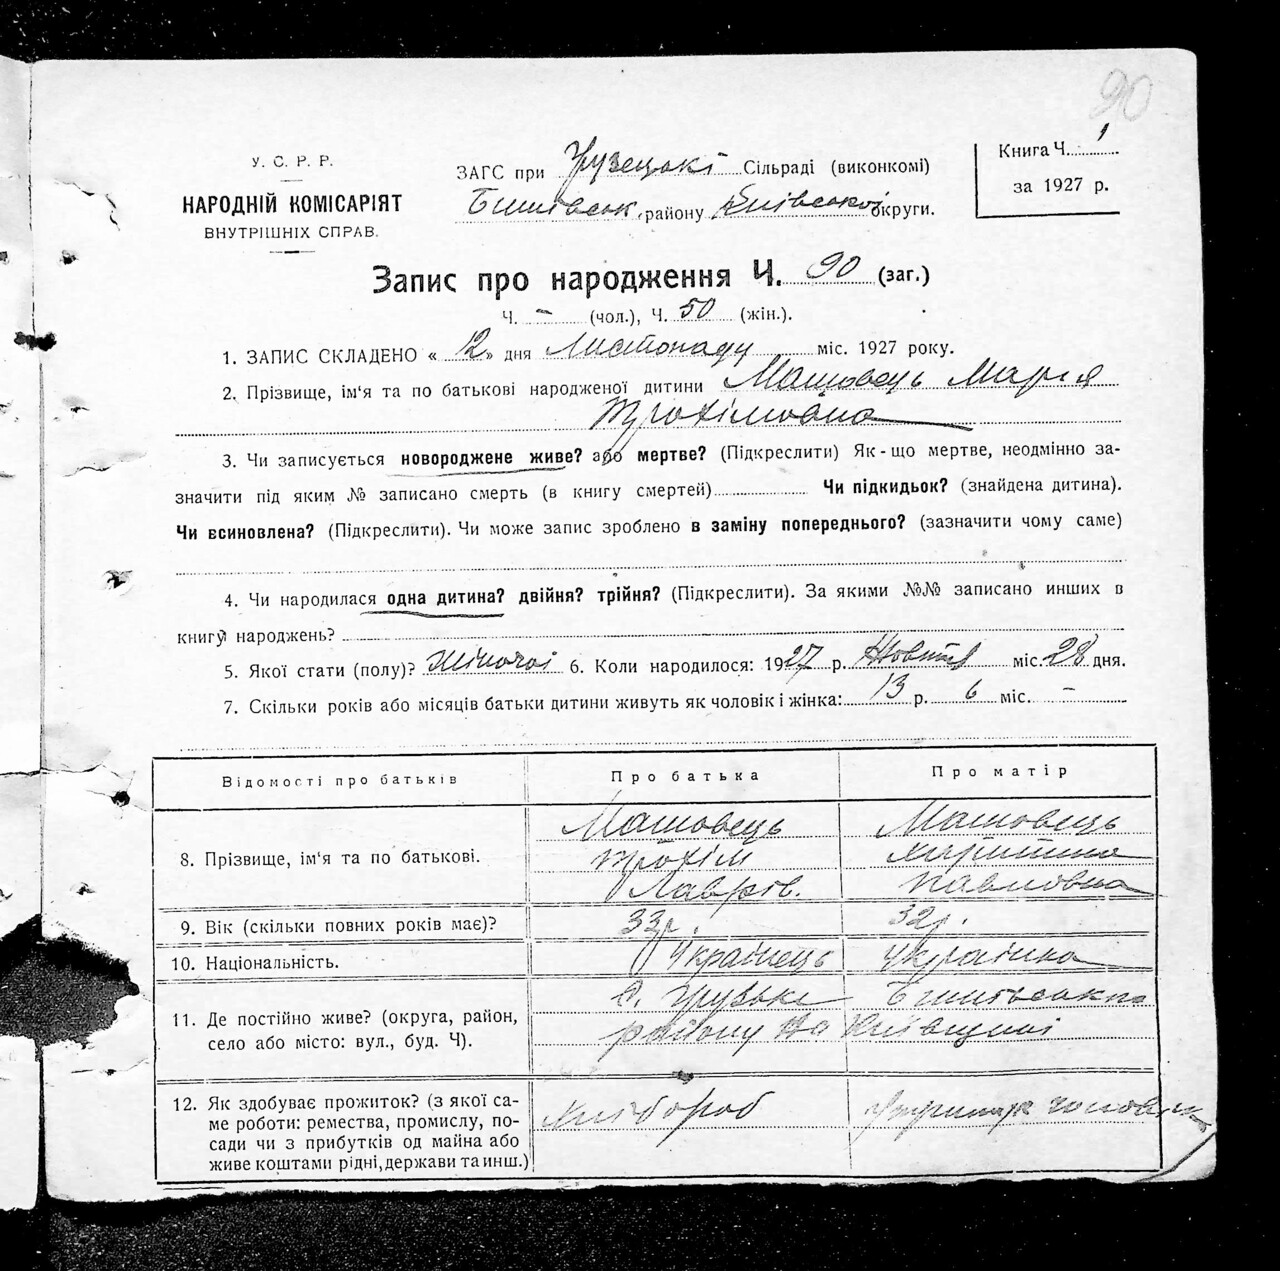 90
У. С. Р. Р.
НАРОДНІЙ КОМІСАРІЯТ
ВНУТРІШНІХ СПРАВ.
ЗАГС при Грузецькі Сільраді (виконкомі)
Бишівськ. району Київської округи.
Книга Ч. 1
за 1927 р.
Запис про народження Ч. 90 (заг.)
Ч. - (чол.), Ч. 50 (жін.).
1. ЗАПИС СКЛАДЕНО « 12 » дня Листопаду міс. 1927 року.
2. Прізвище, ім'я та по батькові народженої дитини Машовець Марія
Трохімовна
3. Чи записується новороджене живе? або мертве? (Підкреслити) Як-що мертве, неодмінно за-
значити під яким № записано смерть (в книгу смертей) Чи підкидьок? (знайдена дитина).
Чи всиновлена? (Підкреслити). Чи може запис зроблено в заміну попереднього? (зазначити чому саме)
4. Чи народилася одна дитина? двійня? трійня? (Підкреслити). За якими №№ записано инших в
книгу народжень?
5. Якої стати (полу)? Жіночої 6. Коли народилося: 1927 р. Жовтня міс. 28 дня.
7. Скільки років або місяців батьки дитини живуть як чоловік і жінка: 13 р. 6 міс. -
Відомості про батьків Про батька Про матір
8. Прізвище, ім'я та по батькові. Машовець Трохім Лаврів. Машовець Христина Павловна
9. Вік (скільки повних років має)? 33р. 32р.
10. Національність. Українець Українка
11. Де постійно живе? (округа, район, с. Грузьке Бишівського
село або місто: вул., буд. Ч). району на Київщині
12. Як здобуває прожиток? (з якої са- Хлібороб Утримує чоловік
ме роботи: ремества, промислу, по-
сади чи з прибутків од майна або
живе коштами рідні, держави та инш.)